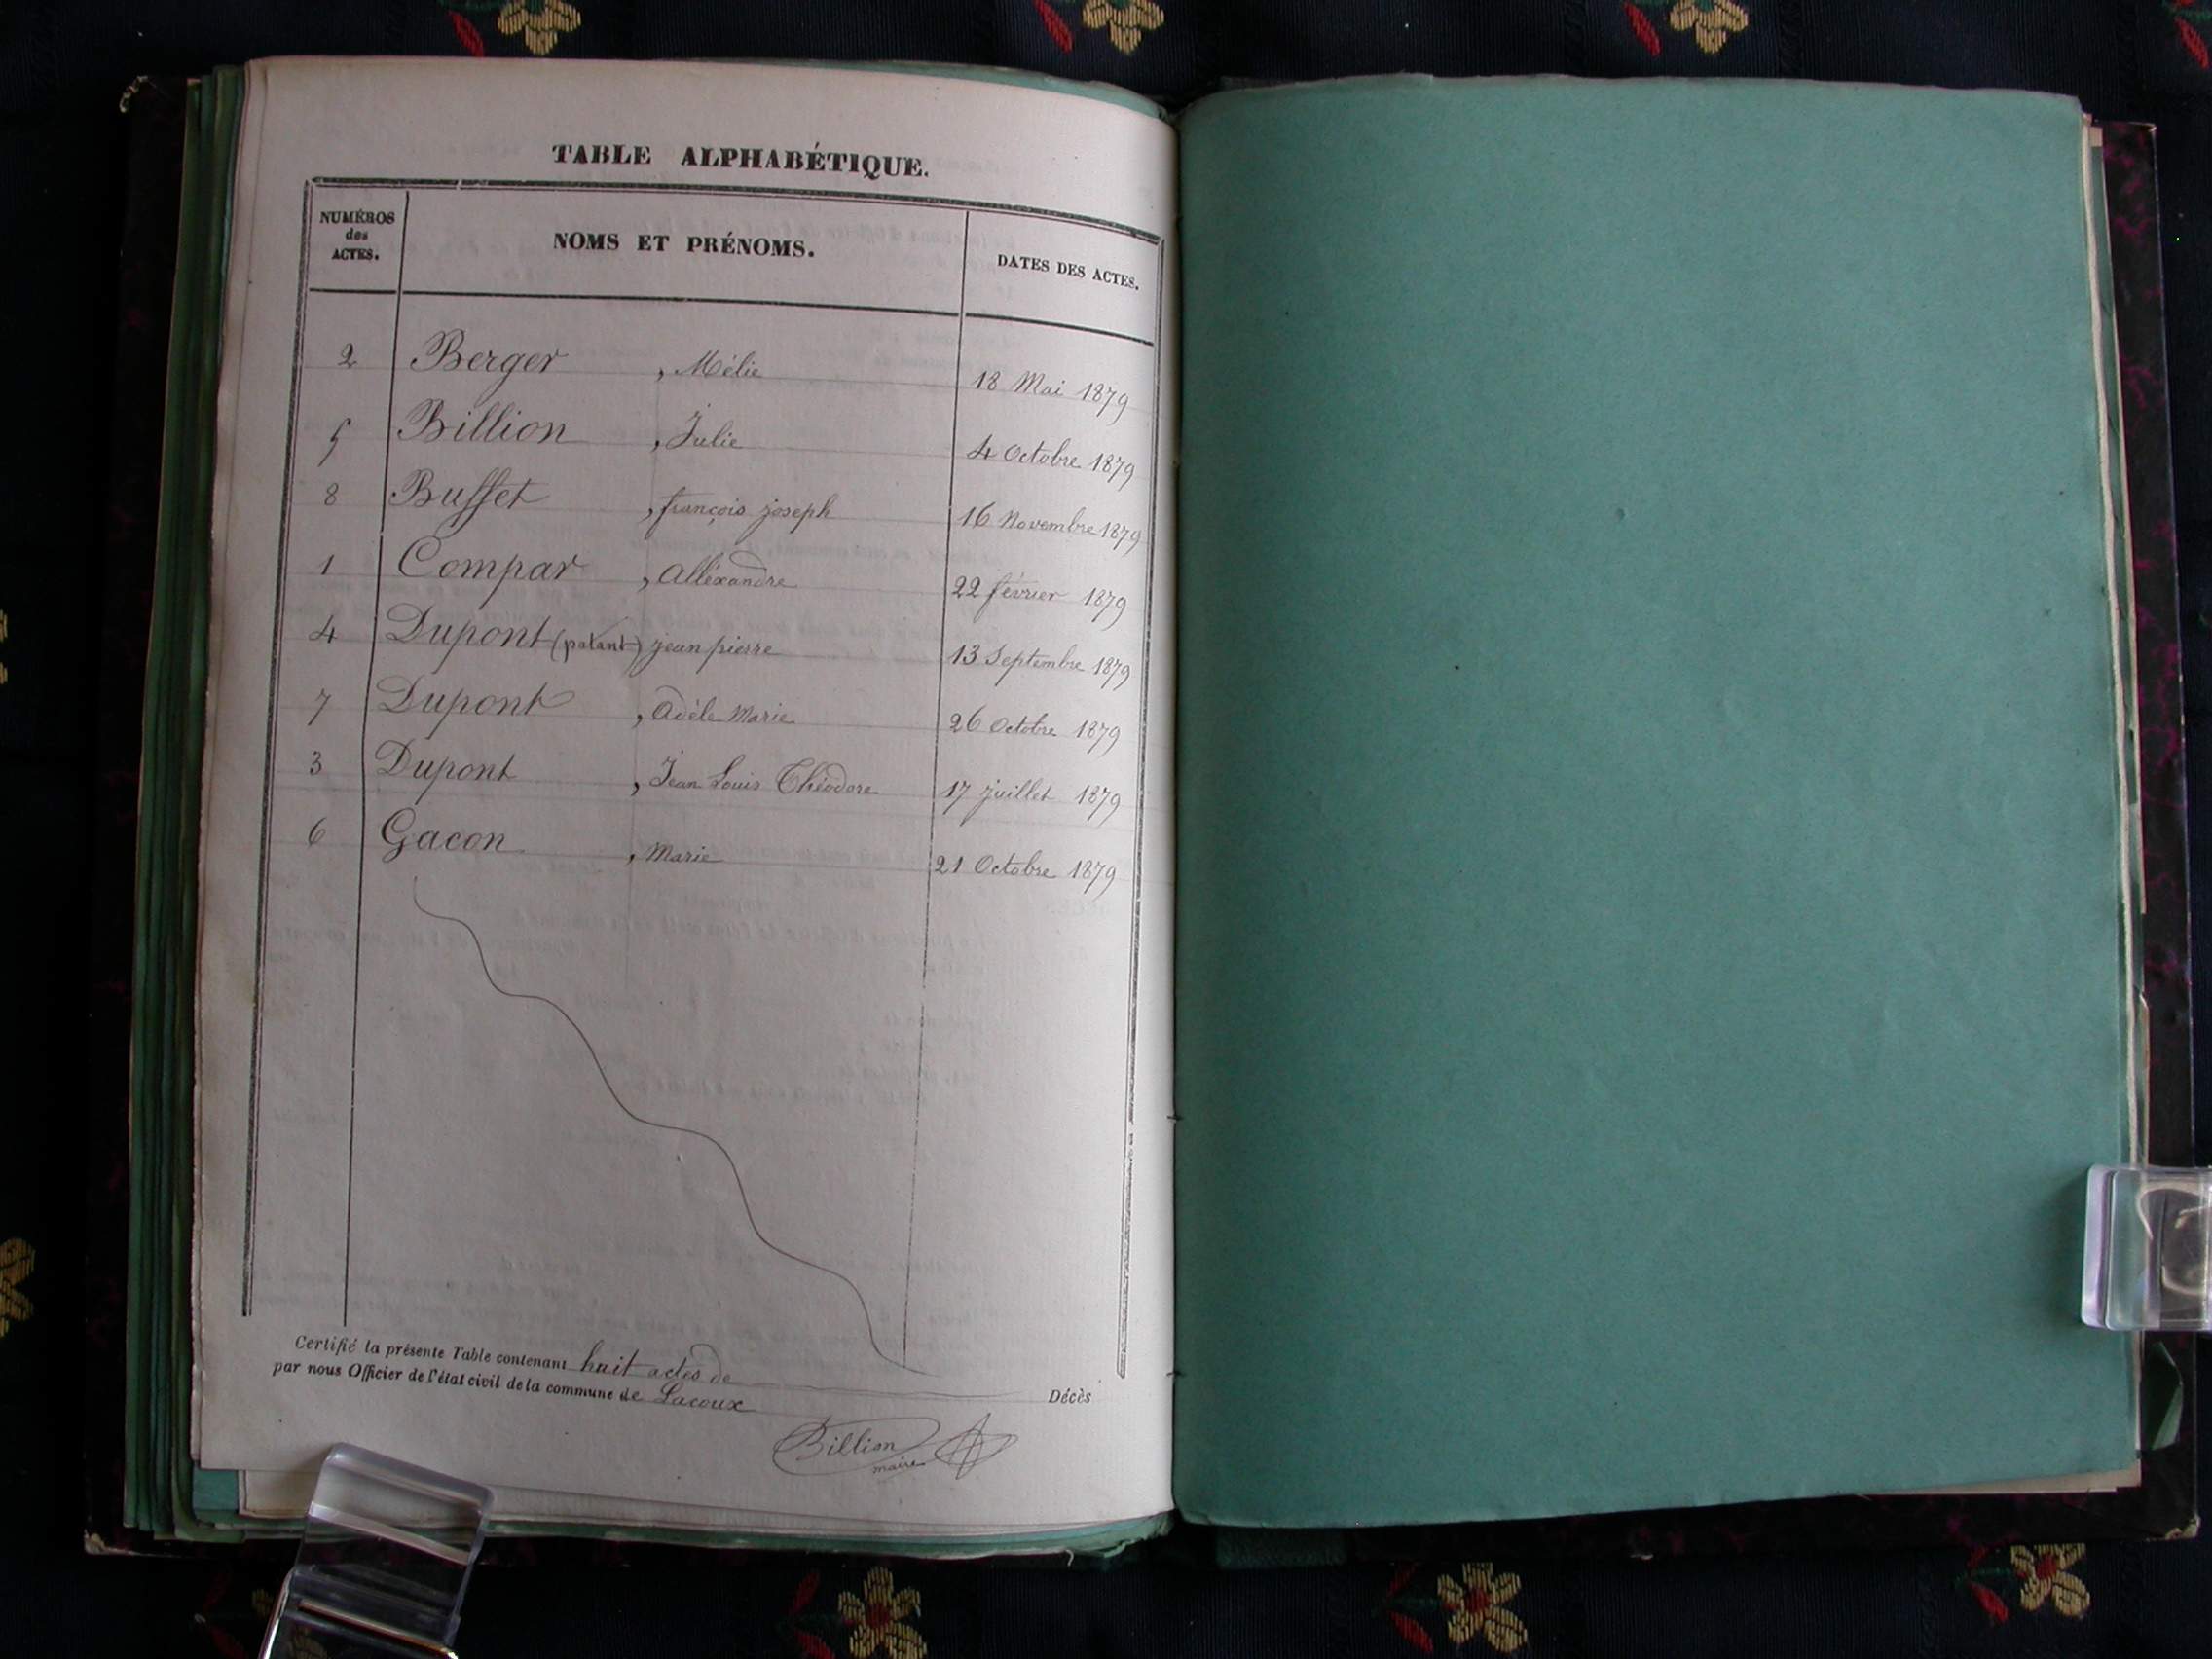 TABLE ALPHABÉTIQUE.
NUMÉROS des ACTES. NOMS ET PRÉNOMS. DATES DES ACTES.
2 Berger , Mélie 18 Mai 1879
5 Billion , Julie 4 Octobre 1879
8 Buffet , françois joseph 16 Novembre 1879
1 Compar , Alléxandre 22 février 1879
4 Dupont (patant) jean pierre 13 Septembre 1879
7 Dupont , Adèle Marie 26 Octobre 1879
3 Dupont , Jean Louis Théodore 17 juillet 1879
6 Gacon , Marie 21 Octobre 1879
Certifié la présente Table contenant huit actes de Décès
par nous Officier de l'état civil de la commune de Lacoux
Billion
maire